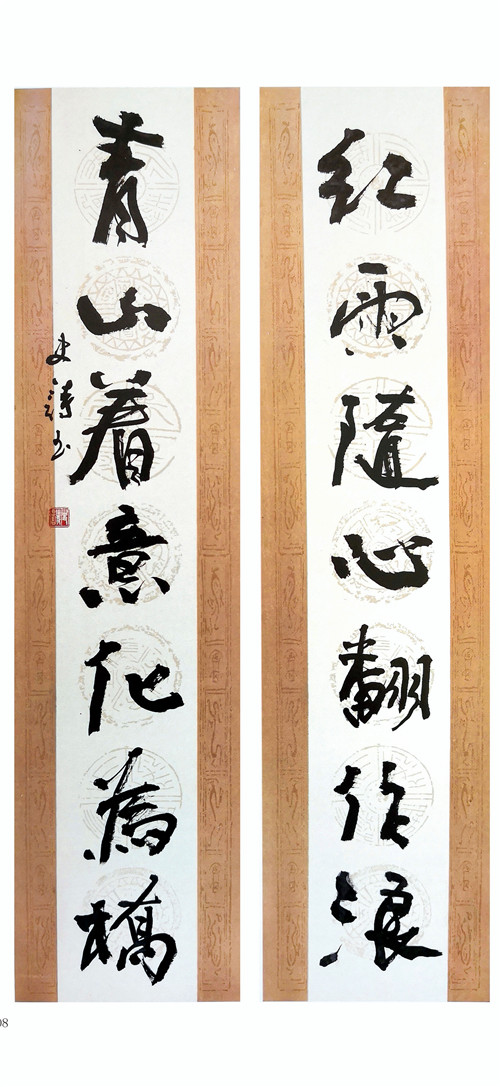 红雨随心翻作浪
青山着意化为橋
史詩书
08